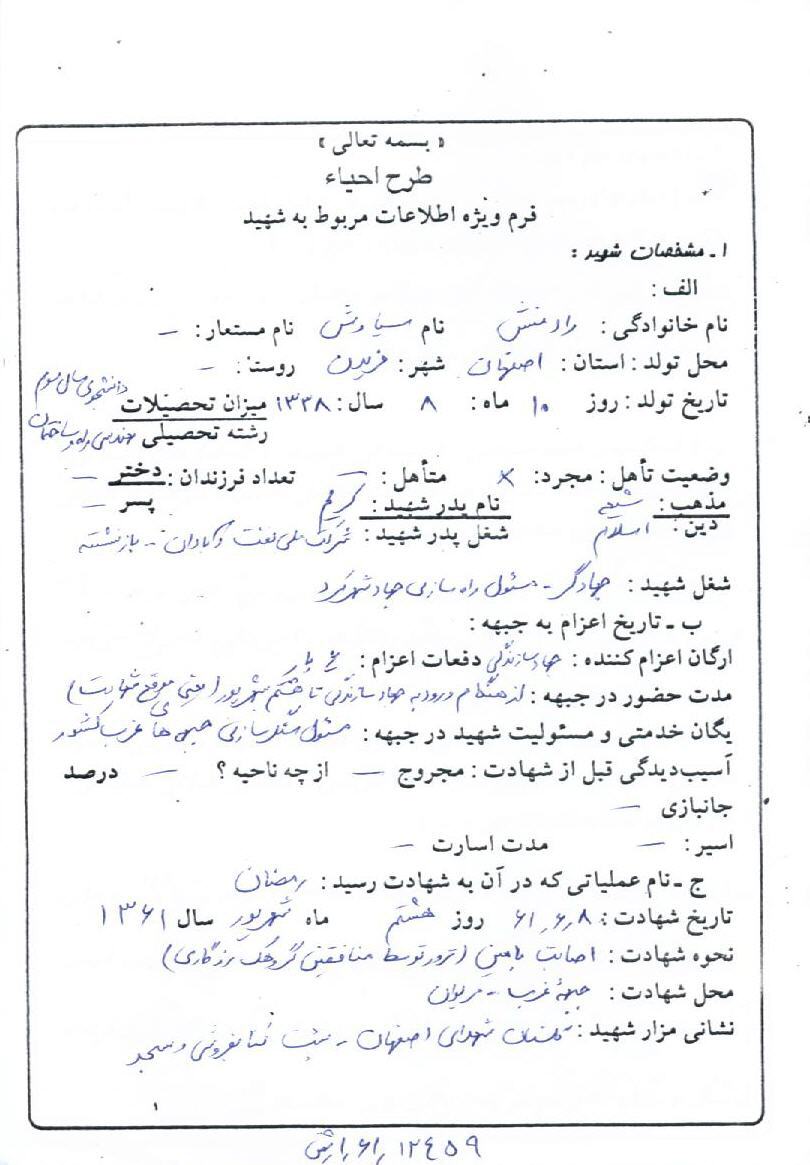 « بسمه تعالی »
طرح احیاء
فرم ویژه اطلاعات مربوط به شهید
۱ ـ مشخصات شهید :
الف :
نام خانوادگی : رادمنش نام سیاوش نام مستعار : –
محل تولد : استان : اصفهان شهر : فریدن روستا : –
تاریخ تولد : روز ۱۰ ماه : ۸ سال : ۱۳۳۸ میزان تحصیلات دانشجوی سال سوم
رشته تحصیلی مهندسی راه و ساختمان
وضعیت تأهل : مجرد : × متأهل : – تعداد فرزندان : دختر –
مذهب : شیعه نام پدر شهید : کریم پسر –
دین : اسلام شغل پدر شهید : شرکت ملی نفت آبادان - بازنشسته
شغل شهید : جهادگر - مسئول راه سازی جهاد شهرکرد
ب ـ تاریخ اعزام به جبهه :
ارگان اعزام کننده : جهاد سازندگی دفعات اعزام : بار
مدت حضور در جبهه : از هنگام ورود به جهاد سازندگی تا هشتم شهریور (یعنی موقع شهادت)
یگان خدمتی و مسئولیت شهید در جبهه : مسئول سنگر سازی جبهه های غرب کشور
آسیب‌دیدگی قبل از شهادت : مجروح – از چه ناحیه ؟ – درصد
جانبازی –
اسیر : – مدت اسارت –
ج ـ نام عملیاتی که در آن به شهادت رسید : رمضان
تاریخ شهادت : ۶۱٫۶٫۸ روز هشتم ماه شهریور سال ۱۳۶۱
نحوه شهادت : اصابت با مین (ترور توسط منافقین گروهک رزگاری)
محل شهادت : جبهۀ غرب - مریوان
نشانی مزار شهید : گلستان شهدای اصفهان - پشت کتابفروشی و مسجد
۱
۱۲۴۵۹٫۶۱٫